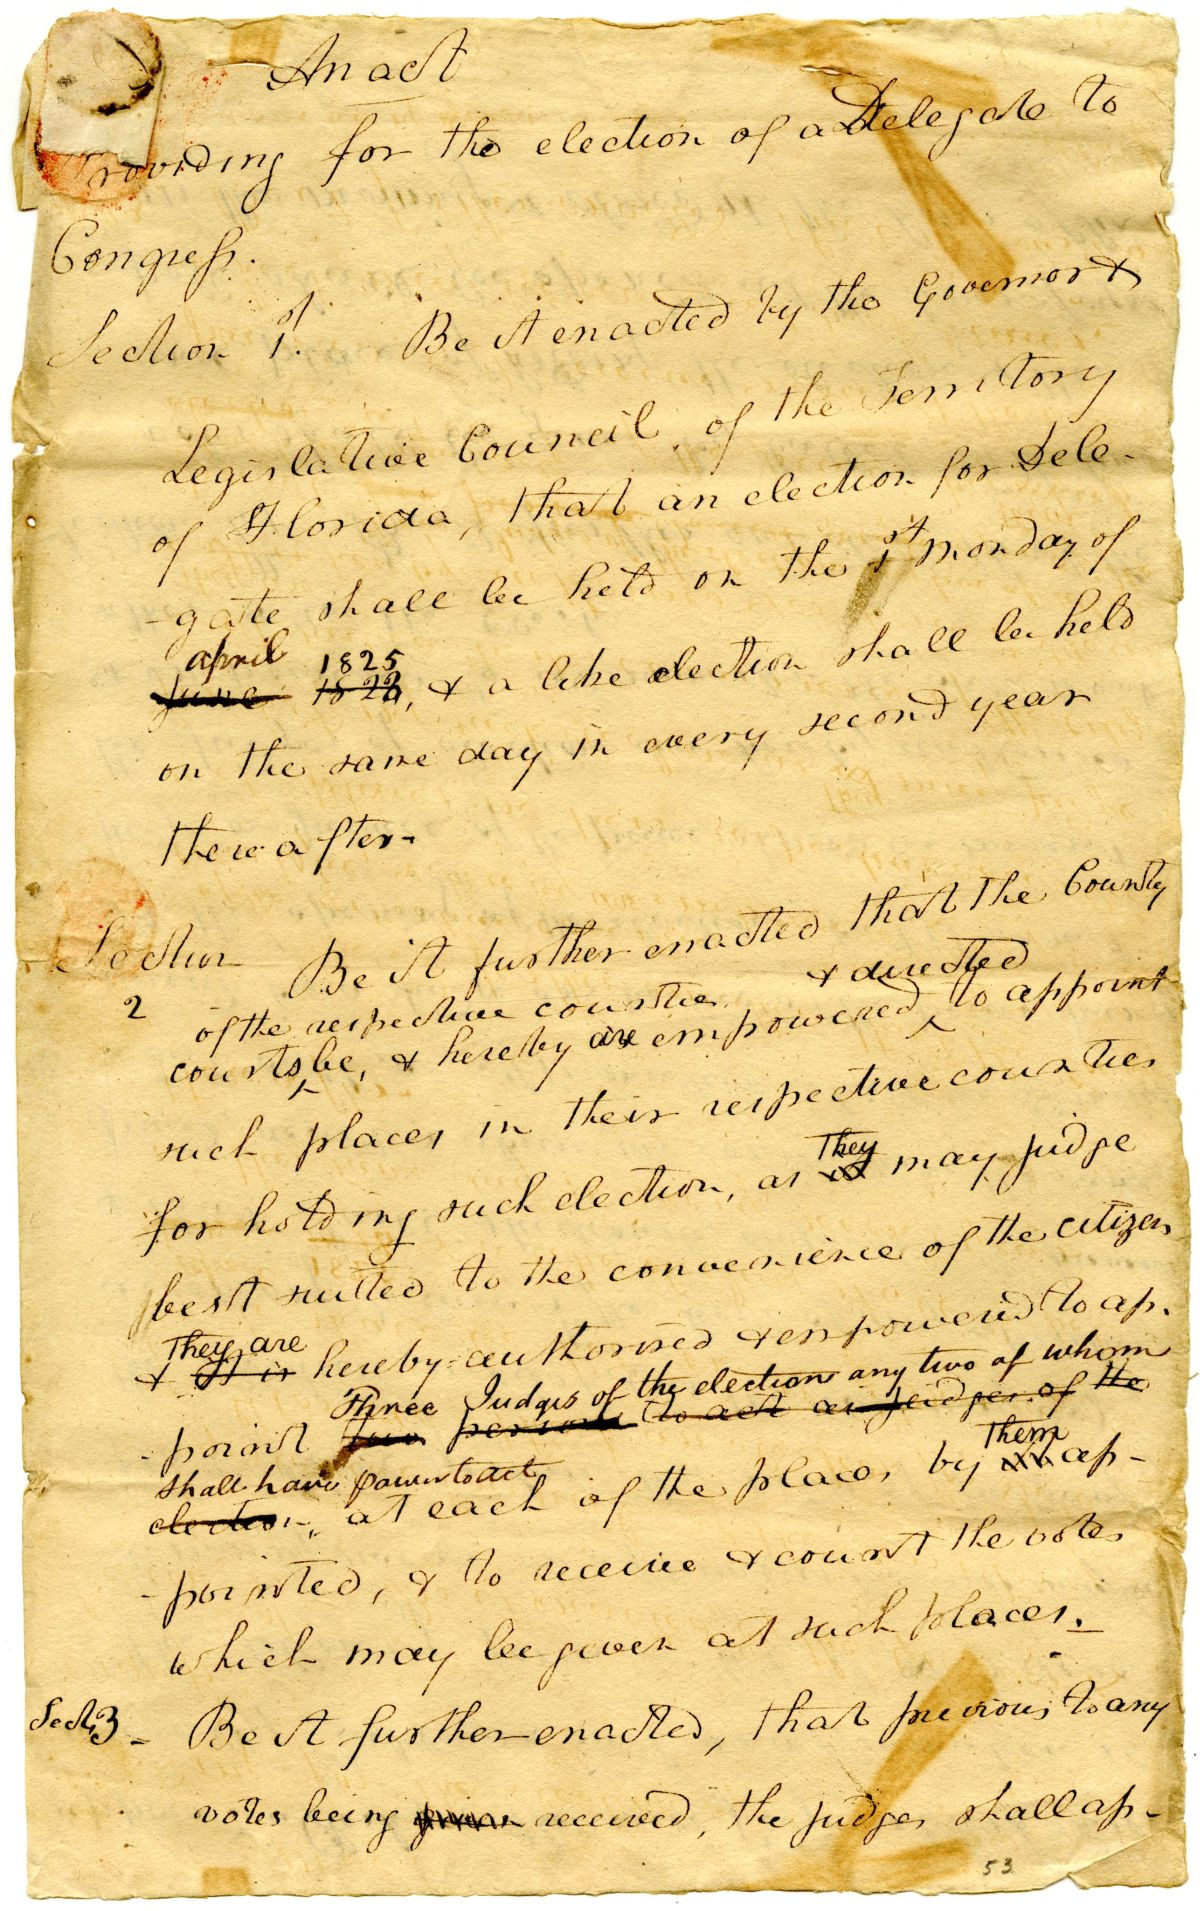 An act
Providing for the election of a Delegate to
Congress.
Section 1st. Be it enacted by the Governor &
Legislative Council, of the Territory
of Florida, that an election for Dele-
-gate shall be held on the 1st Monday of
april 1825
June 182, & a like election shall be held
on the same day in every second year
thereafter-
Section Be it further enacted that the County
2 of the respective counties & directed
courts be, & hereby are empowered ^ to appoint
such places in their respective counties
They
for holding such election, as it may judge
best suited to the convenience of the citizens
They are
& it is hereby authorised & empowered to ap.
Three Judges of the election any two of whom
-point two persons to act as judges of the
shall have power to act Them
election, at each of the places by it ap-
-pointed, & to receive & count the votes
which may be given at such places.
Sect. 3 - Be it further enacted, that previous to any
votes being received, the judges shall ap-
53